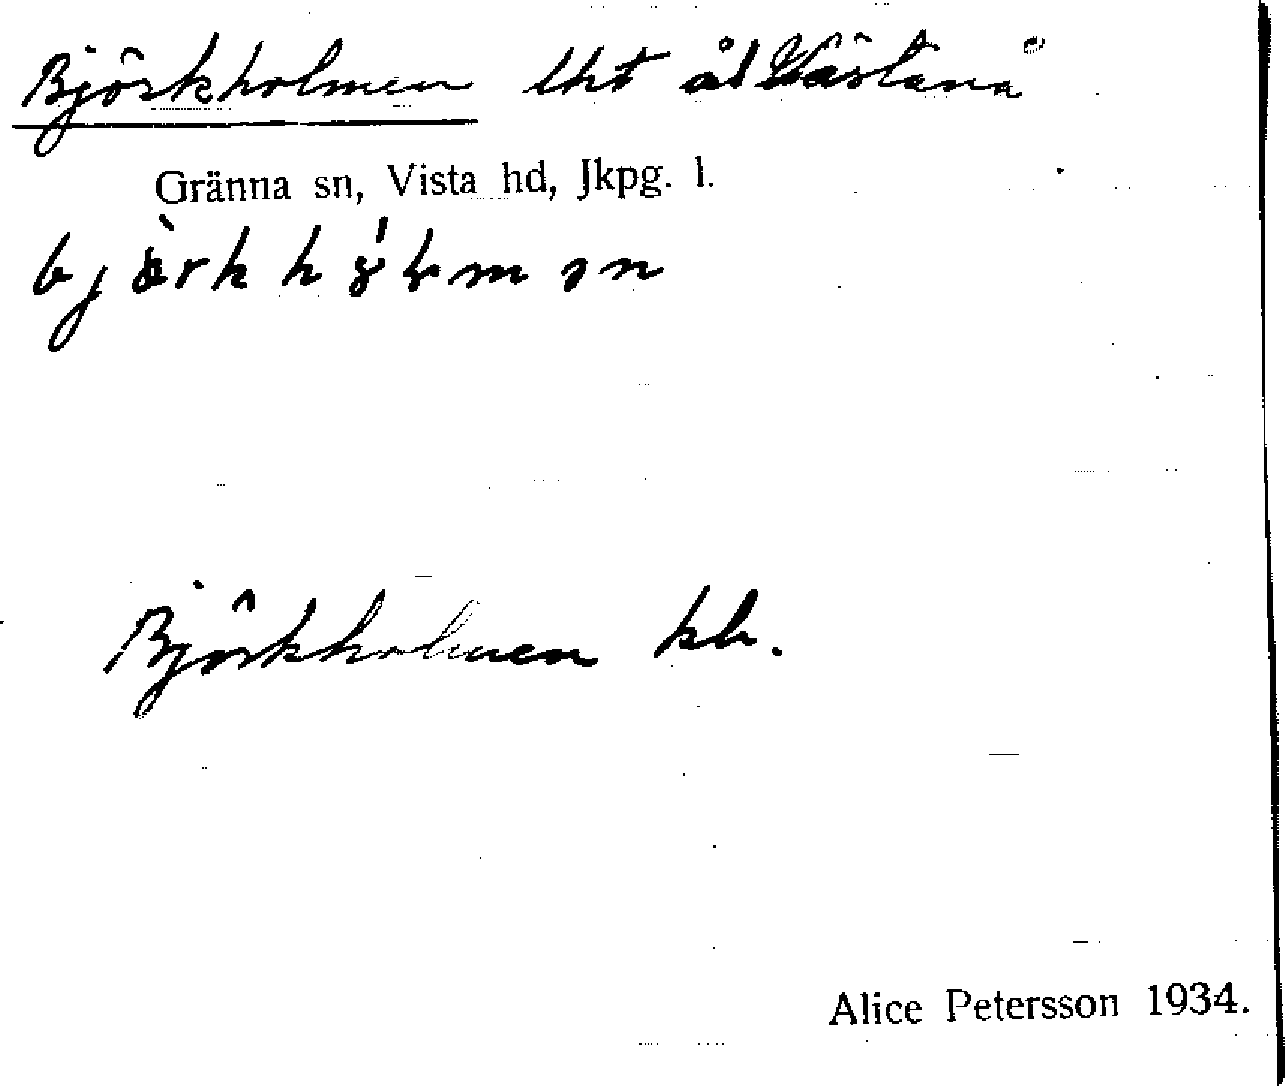 Björkholmen lht å Västanå
Gränna sn, Vista hd, Jkpg. l.
Björkholmen kb.
Alice Petersson 1934.